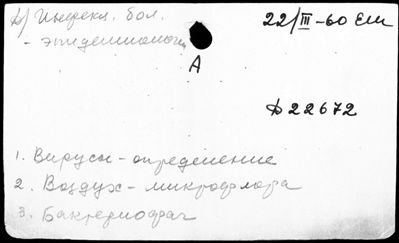 б) Инфекц. бол. 22/III-60 ЕМ
- эпидемиология
А
Д 22672
1. Вирусы - определение
2. Воздух - микрофлора
3. Бактериофаг